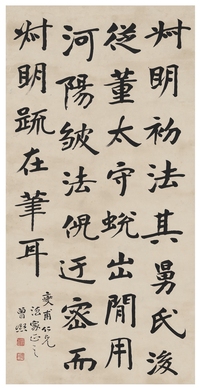 艸明初法其舅氏後
從董太守蛻出間用
河陽皴法倪迂密而
艸明疏在筆耳
夔甫仁兄
法家正之
曾熙